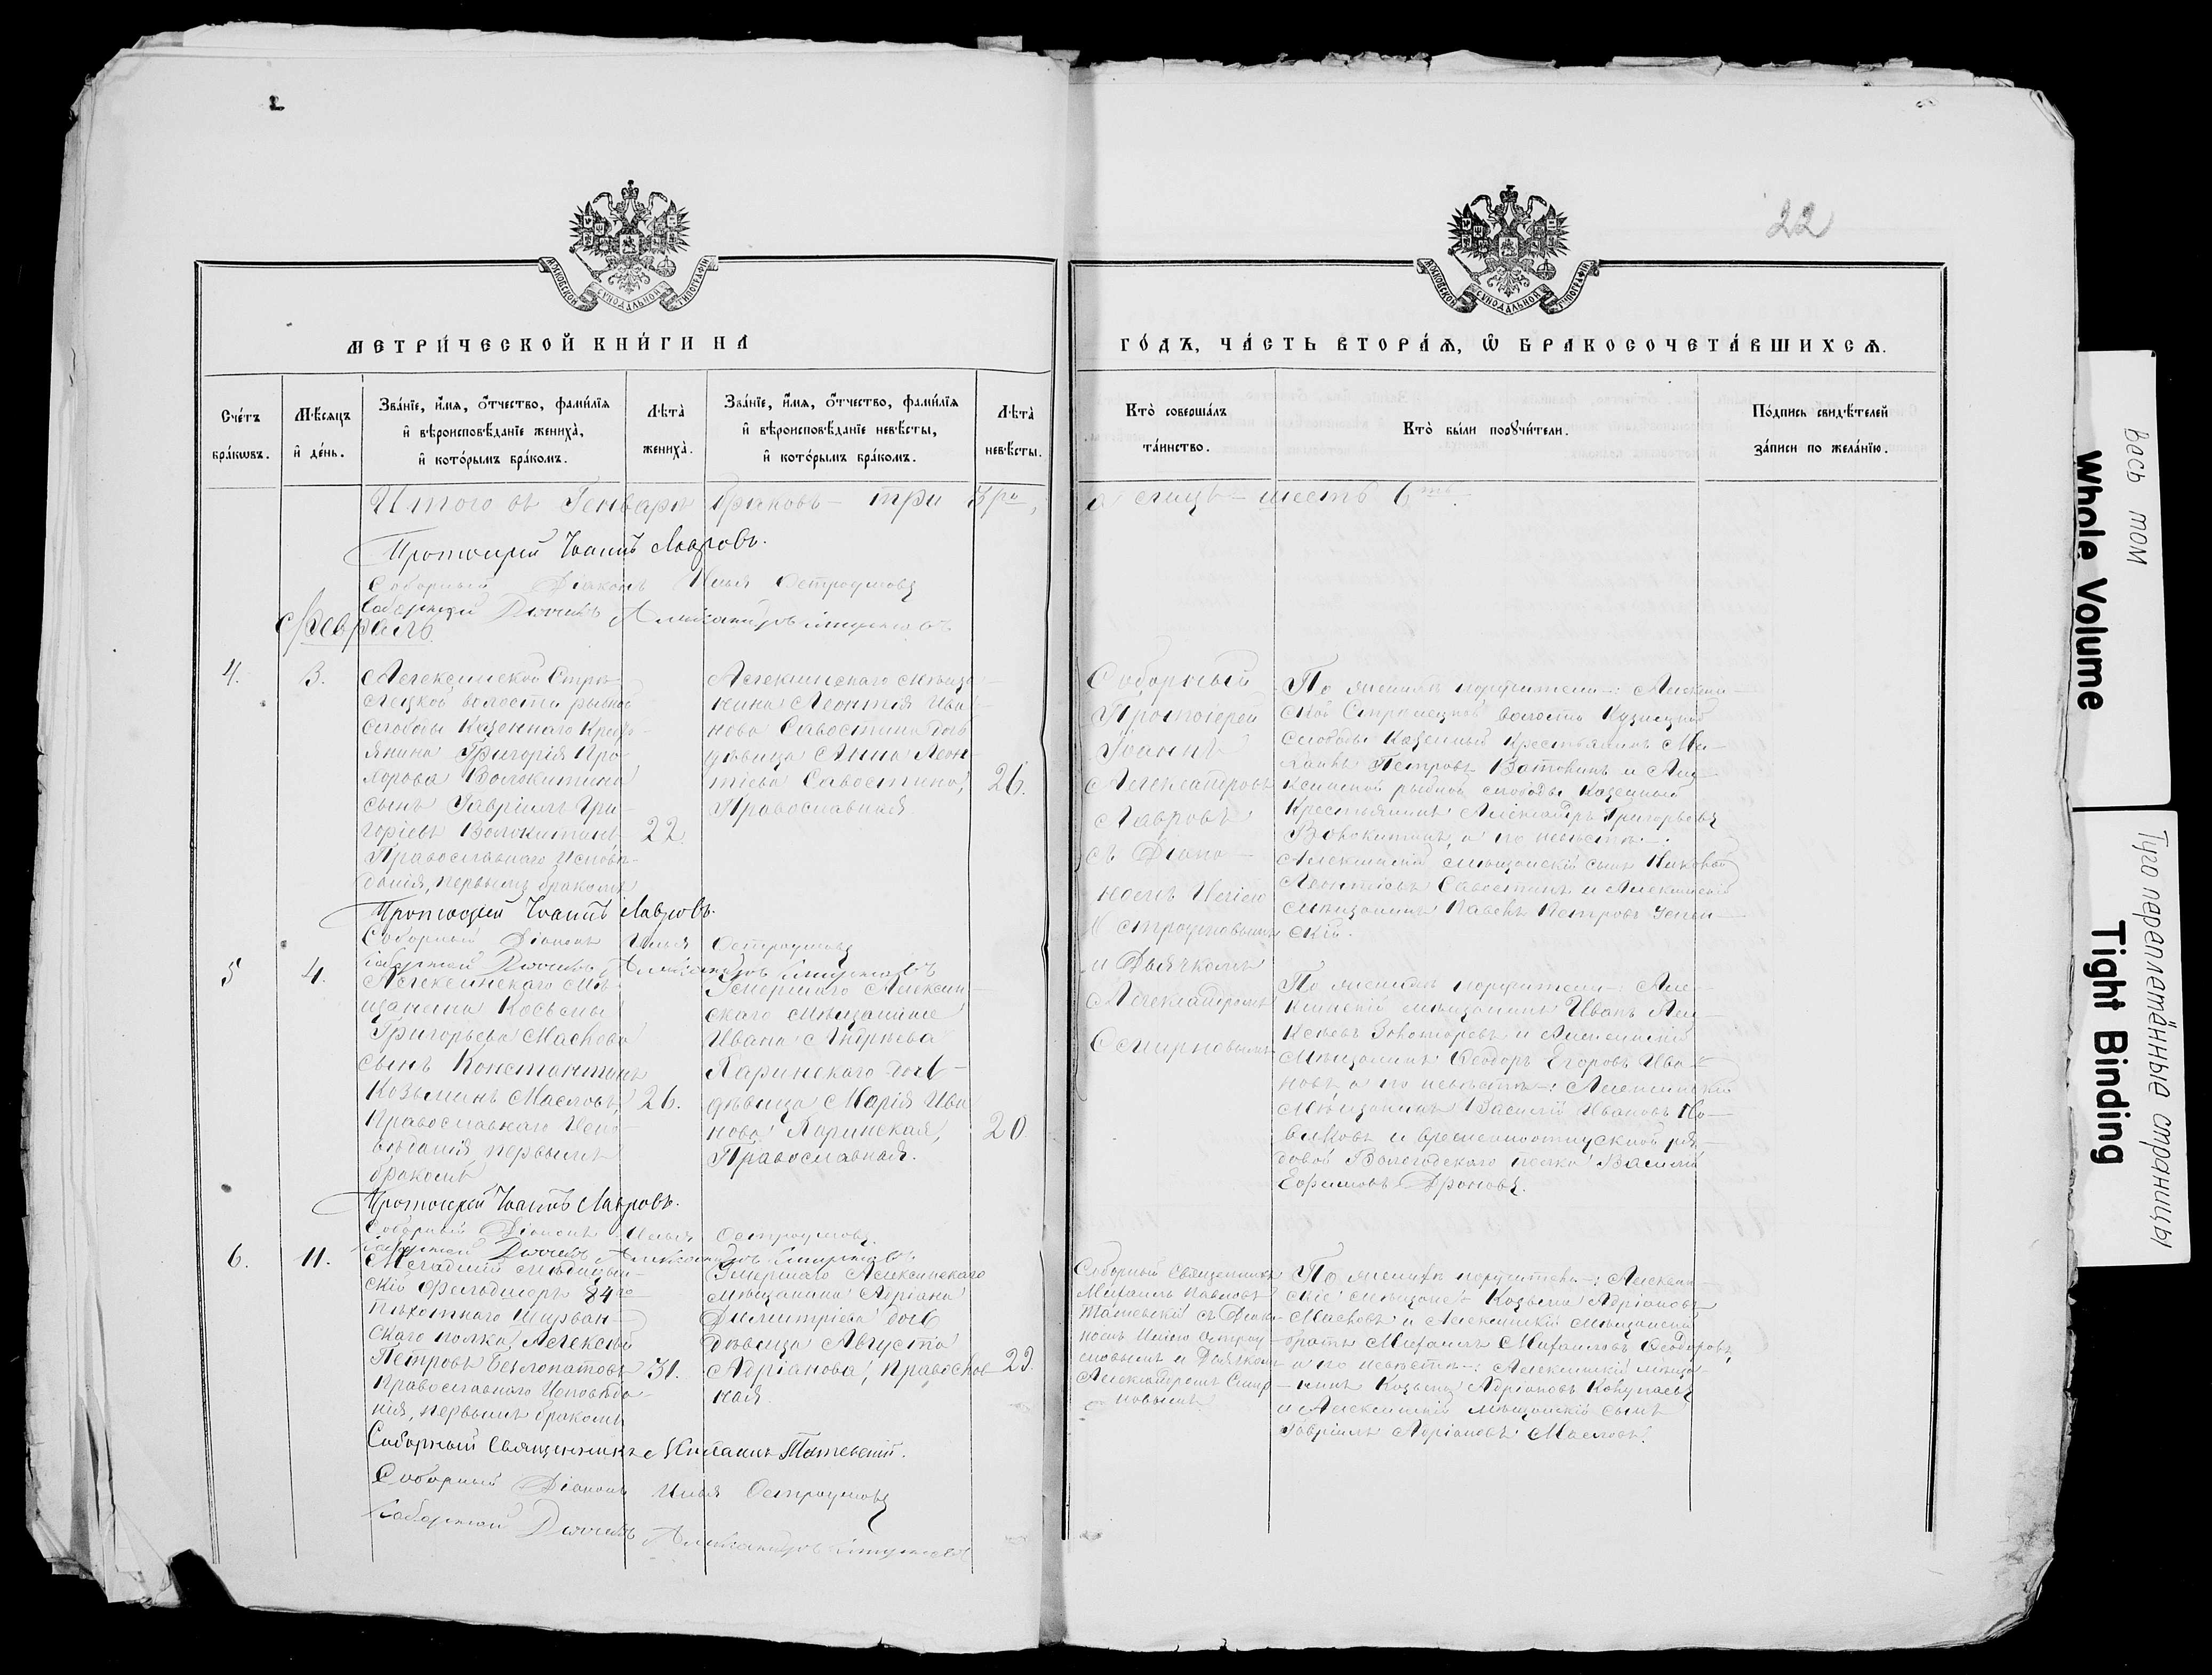 22
МОСКОВСКОЙ СѴНОДАЛЬНОЙ ТИПОГРАФІИ
МОСКОВСКОЙ СѴНОДАЛЬНОЙ ТИПОГРАФІИ
МЕТРИ́ЧЕСКОЙ КНИ́ГИ НА
ГО́ДЪ, ЧА́СТЬ ВТОРА́Ѧ, Ѡ БРАКОСОЧЕТА́ВШИХСѦ.
Сче́тъ бра́кѡвъ.
Мѣ́сяцъ и де́нь.
Зва́нїе, и́мя, о́тчество, фами́лїя и вѣроисповѣ́данїе жениха̀, и кото́рымъ бра́комъ.
Лѣта̀ жениха̀.
Зва́нїе, и́мя, о́тчество, фами́лїя и вѣроисповѣ́данїе невѣ́сты, и кото́рымъ бра́комъ.
Лѣта̀ невѣ́сты.
Кто̀ соверша́лъ та́инство.
Кто̀ бы́ли порꙋчи́тели.
По́дпись свидѣ́телей за́писи по жела́нїю.
Итого въ Генварѣ браковъ – три 3ри,
а лицъ – шесть 6ть.
Протоіерей Іоаннъ Лавровъ.
Соборный Діаконъ Илья Остроумовъ
Соборный Дьячекъ Александръ Смирновъ
Февраль.
4.
3.
Алексинской Стрѣ-
лецкой волости рыбной
слободы Казеннаго Кресть-
янина Григорія Про-
хорова Волокитина
сынъ Гавріилъ Гри-
горіевъ Волокитинъ
Православнаго Исповѣ-
данія, первымъ бракомъ
22.
Алексинскаго мѣща-
нина Леонтія Ива-
нова Савостина дочь
дѣвица Анна Леон-
тіева Савостина,
Православная
26.
Соборный
Протоіерей
Іоаннъ
Александровъ
Лавровъ
съ Діако-
номъ Иліею
Остроумовымъ
и Дьячкомъ
Александромъ
Смирновымъ
По женихѣ поручители: Алексин-
ской Стрѣлецкой волости Кузнецкой
слободы Казенный Крестьянинъ Ми-
хаилъ Петровъ и Але-
ксинской рыбной слободы Казенный
Крестьянинъ Александръ Григорьевъ
Волокитинъ, а по невѣстѣ:
Алексинскій мѣщанскій сынъ
Леонтіевъ Савостинъ и Алексинскій
мѣщанинъ Павелъ Петровъ Успен-
скій.
Протоіерей Іоаннъ Лавровъ.
Соборный Діаконъ Илья Остроумовъ
Соборный Дьячекъ Александръ Смирновъ
5
4.
Алексинскаго Мѣ-
щанина Косьмы
Григорьева Маслова
сынъ Константинъ
Козьминъ Масловъ,
Православнаго Испо-
вѣданія первымъ
бракомъ
26.
Умершаго Алексин-
скаго мѣщанина
Ивана Андреева
Ларинскаго дочь
дѣвица Марія Ива-
нова Ларинская,
Православная.
20.
По женихѣ поручители: Але-
ксинскій мѣщанинъ Иванъ Але-
ксѣевъ Золотаревъ и Алексинскій
Мѣщанинъ Ѳеодоръ Егоровъ Ива-
новъ а по невѣстѣ: Алексинскій
Мѣщанинъ Василій Ивановъ Но-
виковъ и временноотпускной ря-
довой Вологодскаго полка Василій
Ефимовъ Дроновъ.
Протоіерей Іоаннъ Лавровъ.
Соборный Діаконъ Илья Остроумовъ.
Соборный Дьячекъ Александръ Смирновъ
6.
11.
Младшій медицин-
скій Фельдшеръ 84го
Пѣхотнаго Ширван-
скаго полка, Алексѣй
Петровъ Безлопатовъ
Православнаго Исповѣда-
нія, первымъ бракомъ
31.
Умершаго Алексинскаго
мѣщанина Адріана
Димитріева дочь
дѣвица Августа
Адріанова, Православ-
ная.
22.
Соборный Священникъ
Михаилъ Павловъ
Татевскій съ Діако-
номъ Иліею Остроу-
мовымъ и Дьячкомъ
Александромъ Смир-
новымъ
По женихѣ поручители: Алексин-
скіе мѣщане: Козьма Адріановъ
Масловъ и Алексинскій мѣщанскій
братъ Михаилъ Михаиловъ Ѳеодоровъ,
а по невѣстѣ: Алексинскій мѣща-
нинъ Козьма Адріановъ
и Алексинскій мѣщанскій сынъ
Гавріилъ Адріановъ Масловъ.
Соборный Священникъ Михаилъ Татевскій.
Соборный Діаконъ Илья Остроумовъ
Соборный Дьячекъ Александръ Смирновъ
Весь том
Whole Volume
Туго переплетённые страницы
Tight Binding